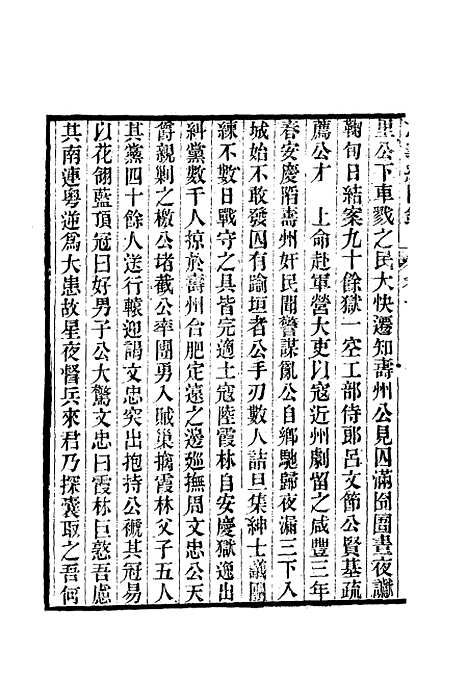 里公下車戮之民大快遷知壽州公見囚滿囹圄晝夜讞
鞠旬日結案九十餘獄一空工部侍郎呂文節公賢基疏
薦公才　上命赴軍營大吏以寇近州劇留之咸豐三年
春安慶陷壽州奸民聞警謀亂公自鄉馳歸夜漏三下入
城始不敢發囚有踰垣者公手刃數人詰旦集紳士議團
練不數日戰守之具皆完適土寇陸霞林自安慶獄逸出
糾黨數千人掠於壽州合肥定遠之邊廵撫周文忠公天
爵親剿之檄公堵截公率團勇入賊巢擒霞林父子五人
其黨四十餘人送行轅迎謁文忠突出抱持公褫其冠易
以花翎藍頂冠曰好男子公大驚文忠曰霞林巨憝吾慮
其南連粵逆爲大患故星夜督兵來君乃探囊取之吾何